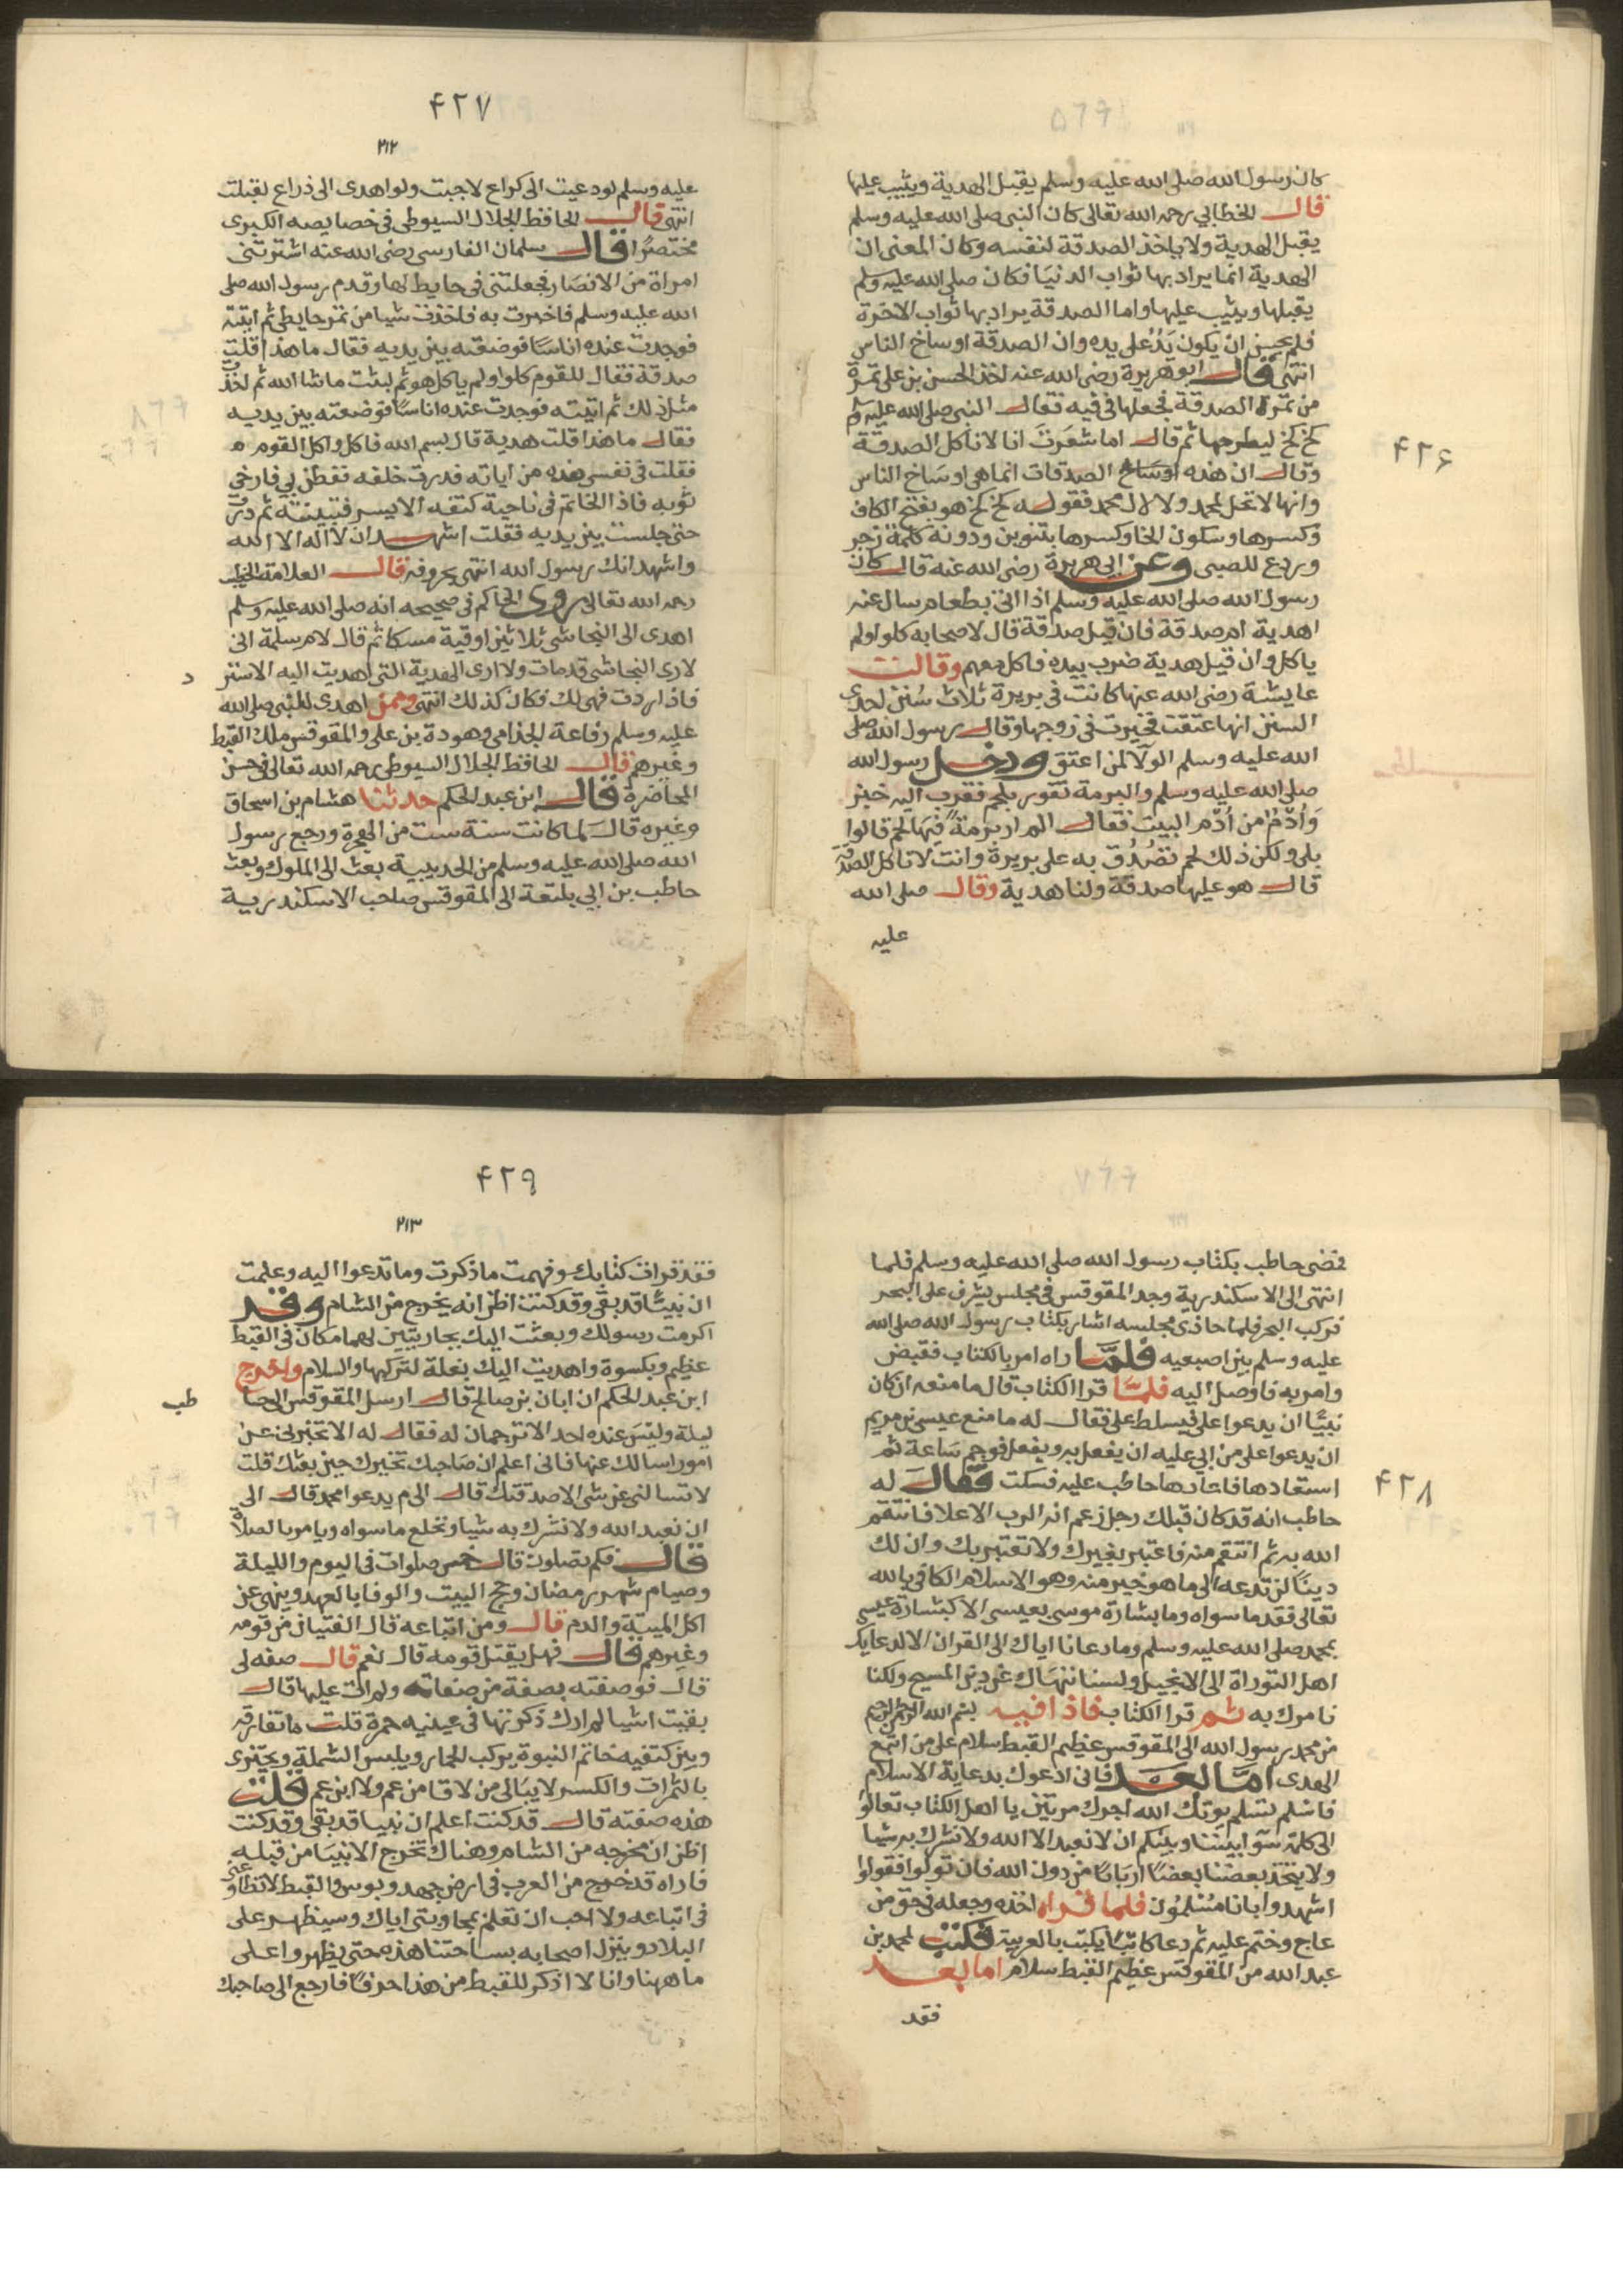 ۴۲۶
كان رسول الله صلى الله عليه وسلم يقبل الهدية ويثيب عليها
قال الخطابي رحمه الله تعالى كان النبي صلى الله عليه وسلم
يقبل الهدية ولا ياخذ الصدقة لنفسه وكان المعنى ان
الهدية انما يراد بها ثواب الدنيا فكان صلى الله عليه وسلم
يقبلها ويثيب عليها واما الصدقة يراد بها ثواب الاخرة
فلم يحسن ان يكون يد على يده وان الصدقة اوساخ الناس
انتهى قال ابو هريرة رضى الله عنه اخذ الحسن بن على تمرة
من تمرة الصدقة فجعلها في فيه فقال النبي صلى الله عليه وسلم
كخ كخ ليطرحها ثم قال اما شعرت انا لا ناكل الصدقة
وقال ان هذه اوساخ الصدقات انما هى اوساخ الناس
وانها لا تحل لمحمد ولا لال محمد فقوله كخ كخ هو بفتح الكاف
وكسرها وسكون الخا وكسرها بتنوين ودونه كلمة زجر
وردع للصبى وعن ابى هريرة رضى الله عنه قال كان
رسول الله صلى الله عليه وسلم اذا اتى بطعام سال عنه
اهدية ام صدقة فان قيل صدقة قال لاصحابه كلوا ولم
ياكل وان قيل هدية ضرب بيده فاكل معهم وقالت
عايشة رضى الله عنها كانت فى بريرة ثلاث سنن احدى
السنن انها عتقت فخيرت فى زوجها وقال رسول الله صلى
الله عليه وسلم الولا لمن اعتق ودخل رسول الله
صلى الله عليه وسلم والبرمة تفور بلحم فقرب اليه خبز
وادم من ادم البيت فقال الم ار برمة فيها لحم قالوا
بلى ولكن ذلك لحم تصدق به على بريرة وانت لا تاكل الصدقة
قال هو عليها صدقة ولنا هدية وقال صلى الله
عليه
۴۲۷
۲۱۲
عليه وسلم لو دعيت الى كراع لاجبت ولو اهدى الى ذراع لقبلت
انتهى قال الحافظ الجلال السيوطى فى خصايصه الكبرى
مختصرا قال سلمان الفارسى رضى الله عنه اشترتنى
امراة من الانصار فجعلتنى فى حايط لها وقدم رسول الله صلى
الله عليه وسلم فاخبرت به فاخذت شيا من تمر حايطى ثم اتيته
فوجدت عنده اناسا فوضعته بين يديه فقال ما هذا قلت
صدقة فقال للقوم كلوا ولم ياكل هو ثم لبثت ما شا الله ثم اخذت
مثل ذلك ثم اتيته فوجدت عنده اناسا فوضعته بين يديه
فقال ما هذا قلت هدية قال بسم الله فاكل واكل القوم
فقلت فى نفسى هذه من اياته فدرت خلفه ففطن بى فارخى
ثوبه فاذا الخاتم فى ناحية كتفه الايسر فتبينته ثم درت
حتى جلست بين يديه فقلت اشهد ان لا اله الا الله
واشهد انك رسول الله انتهى بحروفه قال العلامة الخطيب
رحمه الله تعالى روى الحاكم فى صحيحه انه صلى الله عليه وسلم
اهدى الى النجاشى ثلاثين اوقية مسكا ثم قال لام سلمة انى
لارى النجاشى قد مات ولا ارى الهدية التى اهديت اليه الا ستر
د
فاذا ردت فهى لك فكان كذلك انتهى وممن اهدى للنبى صلى الله
عليه وسلم رفاعة الجذامى وهودة بن على والمقوقس ملك القبط
وغيرهم قال الحافظ الجلال السيوطى رحمه الله تعالى فى حسن
المحاضرة قال ابن عبد الحكم حدثنا هشام بن اسحاق
وغيره قال لما كانت سنة ست من الهجرة ورجع رسول
الله صلى الله عليه وسلم من الحديبية بعث الى الملوك وبعث
حاطب بن ابى بلتعة الى المقوقس صاحب الاسكندرية
۴۲۸
فمضى حاطب بكتاب رسول الله صلى الله عليه وسلم فلما
انتهى الى الاسكندرية وجد المقوقس فى مجلس يشرف على البحر
فركب البحر فلما حاذى مجلسه اشار بكتاب رسول الله صلى الله
عليه وسلم بين اصبعيه فلما راه امر بالكتاب فقبض
وامر به فاوصل اليه فلما قرا الكتاب قال ما منعه ان كان
نبيا ان يدعوا على فيسلط على فقال له ما منع عيسى بن مريم
ان يدعوا على من ابى عليه ان يفعل به ويفعل فوجم ساعة ثم
استعادها فاعادها حاطب عليه فسكت فقال له
حاطب انه قد كان قبلك رجل زعم انه الرب الاعلا فانتقم
الله به ثم انتقم منه فاعتبر بغيرك ولا تعتبر بك وان لك
دينا لن تدعه الى ما هو خير منه وهو الاسلام الكافى بالله
تعالى فقد ما سواه وما بشارة موسى بعيسى الا كبشارة عيسى
بمحمد صلى الله عليه وسلم وما دعانا اياك الى القران الا كدعايك
اهل التوراة الى الانجيل ولسنا ننهاك عن دين المسيح ولكنا
نامرك به ثم قرا الكتاب فاذا فيه بسم الله الرحمن الرحيم
من محمد رسول الله الى المقوقس عظيم القبط سلام على من اتبع
الهدى اما بعد فانى ادعوك بدعاية الاسلام
فاسلم تسلم يوتك الله اجرك مرتين يا اهل الكتاب تعالوا
الى كلمة سوا بيننا وبينكم ان لا نعبد الا الله ولا نشرك به شيا
ولا يتخذ بعضنا بعضا اربابا من دون الله فان تولوا فقولوا
اشهدوا بانا مسلمون فلما قراه اخذه وجعله فى حق من
عاج وختم عليه ثم دعا كاتبا يكتب بالعربية فكتب لمحمد بن
عبد الله من المقوقس عظيم القبط سلام اما بعد
فقد
۴۲۹
۲۱۳
فقد قرات كتابك وفهمت ما ذكرت وما تدعوا اليه وعلمت
ان نبيا قد بقى وقد كنت اظن انه يخرج من الشام وقد
اكرمت رسولك وبعثت اليك بجاريتين لهما مكان فى القبط
عظيم وبكسوة واهديت اليك بغلة لتركبها والسلام واخرج
ابن عبد الحكم ان ابان بن صالح قال ارسل المقوقس الى حا
طب
ليلة وليس عنده احد الا ترجمان له فقال له الا تخبرنى عن
امور اسالك عنها فانى اعلم ان صاحبك تخيرك حين بعثك قلت
لا تسالنى عن شى الا صدقتك قال الى م يدعوا محمد قال الى
ان نعبد الله ولا نشرك به شيا ونخلع ما سواه ويامر بالصلاة
قال فكم تصلون قال خمس صلوات فى اليوم والليلة
وصيام شهر رمضان وحج البيت والوفا بالعهد وينهى عن
اكل الميتة والدم قال ومن اتباعه قال الفتيان من قومه
وغيرهم قال فهل يقتل قومه قال نعم قال صفه لى
قال فوصفته بصفة من صفاته ولم ات عليها قال
بقيت اشيا لم ارك ذكرتها فى عينيه حمرة قلت ما تفارقه
وبين كتفيه خاتم النبوة يركب الحمار ويلبس الشملة ويجتزى
بالتمرات والكسر لا يبالى من لاقا من عم ولا ابن عم قلت
هذه صفته قال قد كنت اعلم ان نبيا قد بقى وقد كنت
اظن ان مخرجه من الشام وهناك تخرج الانبيا من قبله
فاراه قد خرج من العرب فى ارض جهد وبوس والقبط لا تطاوعنى
فى اتباعه ولا احب ان تعلم بمحاورتى اياك وسيظهر على
البلاد وينزل اصحابه بساحتنا هذه حتى يظهروا على
ما ههنا وانا لا اذكر للقبط من هذا حرفا فارجع الى صاحبك